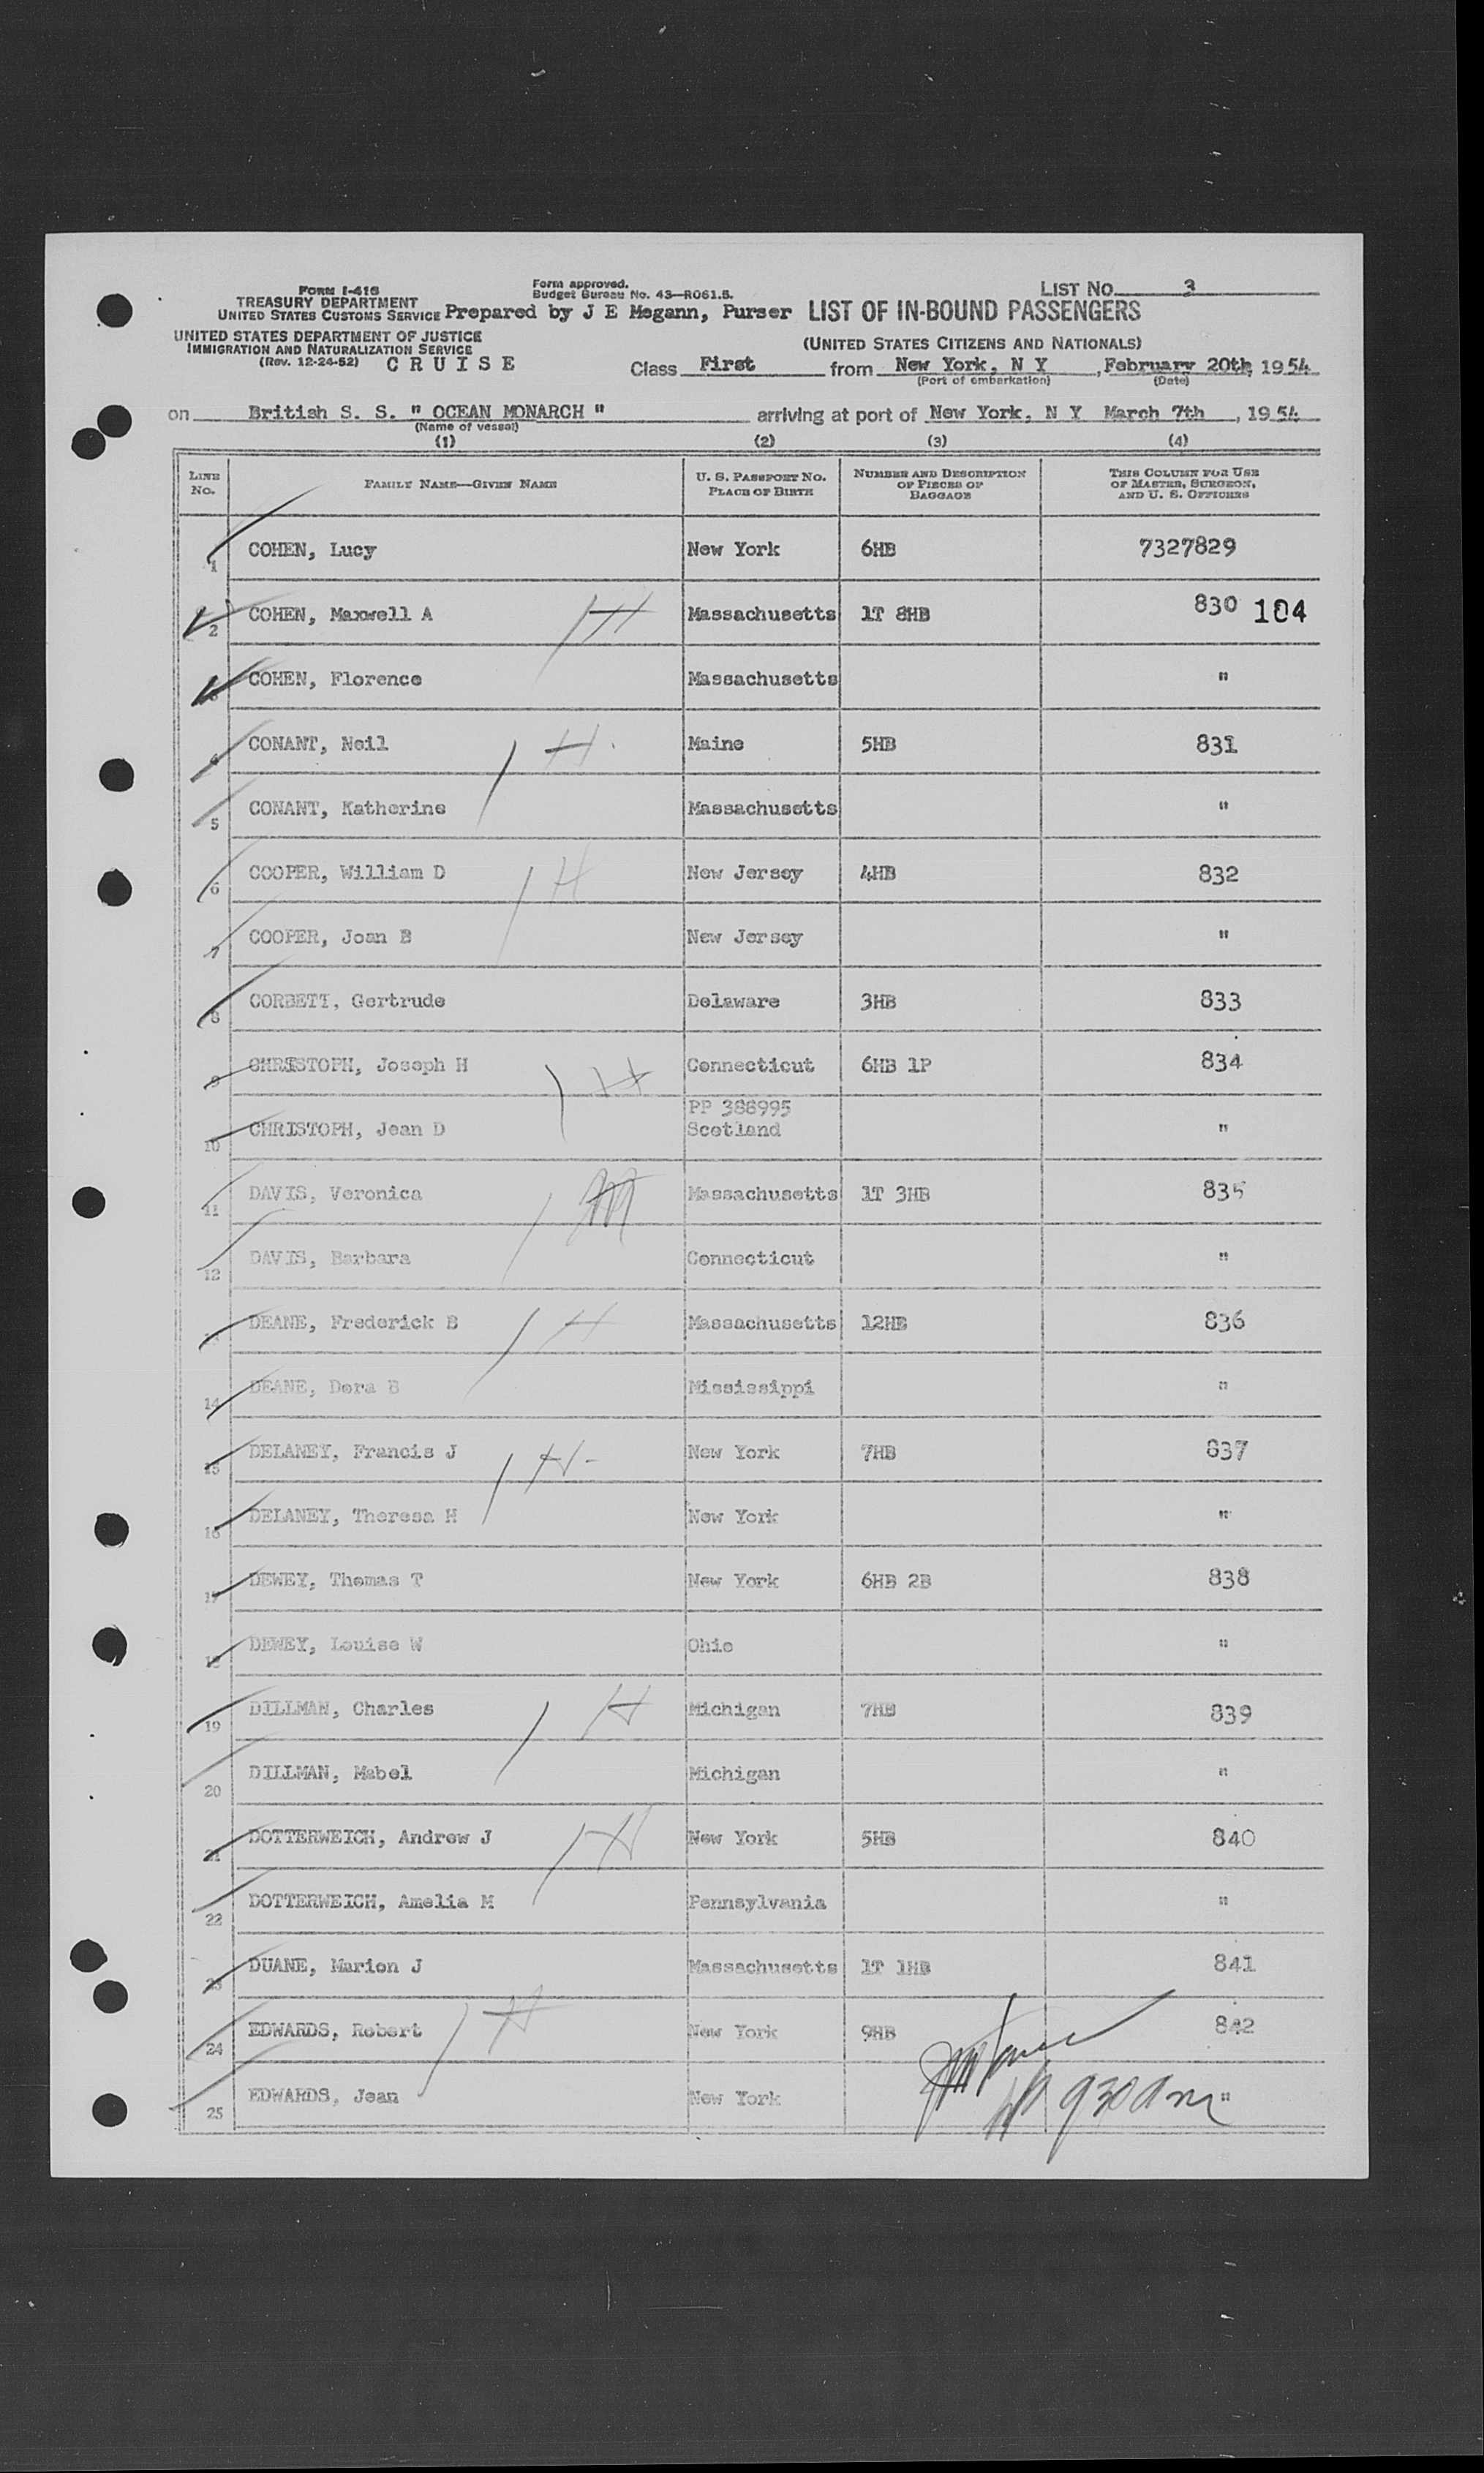 FORM I-416
TREASURY DEPARTMENT
UNITED STATES CUSTOMS SERVICE
UNITED STATES DEPARTMENT OF JUSTICE
IMMIGRATION AND NATURALIZATION SERVICE
(Rev. 12-24-52) C R U I S E
Form approved.
Budget Bureau No. 43—R061.5.
Prepared by J E Megann, Purser
LIST NO. 3
LIST OF IN-BOUND PASSENGERS
(UNITED STATES CITIZENS AND NATIONALS)
Class First from New York, N Y, February 20th, 1954
(Port of embarkation) (Date)
on British S. S. " OCEAN MONARCH " arriving at port of New York, N Y March 7th, 1954
(Name of vessel)
(1) (2) (3) (4)
LINE NO. FAMILY NAME—GIVEN NAME U. S. PASSPORT NO. PLACE OF BIRTH NUMBER AND DESCRIPTION OF PIECES OF BAGGAGE THIS COLUMN FOR USE OF MASTER, SURGEON, AND U. S. OFFICERS
1 COHEN, Lucy New York 6HB 7327829
2 COHEN, Maxwell A Massachusetts 1T 8HB 830 104
3 COHEN, Florence Massachusetts "
4 CONANT, Neil H Maine 5HB 831
5 CONANT, Katherine Massachusetts "
6 COOPER, William D H New Jersey 4HB 832
7 COOPER, Joan B New Jersey "
8 CORBETT, Gertrude Delaware 3HB 833
9 CHRISTOPH, Joseph H H Connecticut 6HB 1P 834
PP 388995
10 CHRISTOPH, Jean D Scotland "
11 DAVIS, Veronica Massachusetts 1T 3HB 835
12 DAVIS, Barbara Connecticut "
DEANE, Frederick B H Massachusetts 12HB 836
14 DEANE, Dora B Mississippi "
15 DELANEY, Francis J H New York 7HB 837
16 DELANEY, Theresa H New York "
17 DEWEY, Thomas T New York 6HB 2B 838
18 DEWEY, Louise W Ohio "
19 DILLMAN, Charles H Michigan 7HB 839
20 DILLMAN, Mabel Michigan "
21 DOTTERWEICH, Andrew J H New York 5HB 840
22 DOTTERWEICH, Amelia M Pennsylvania "
23 DUANE, Marion J Massachusetts 1T 1HB 841
24 EDWARDS, Robert H New York 9HB 842
25 EDWARDS, Jean New York "
930 am